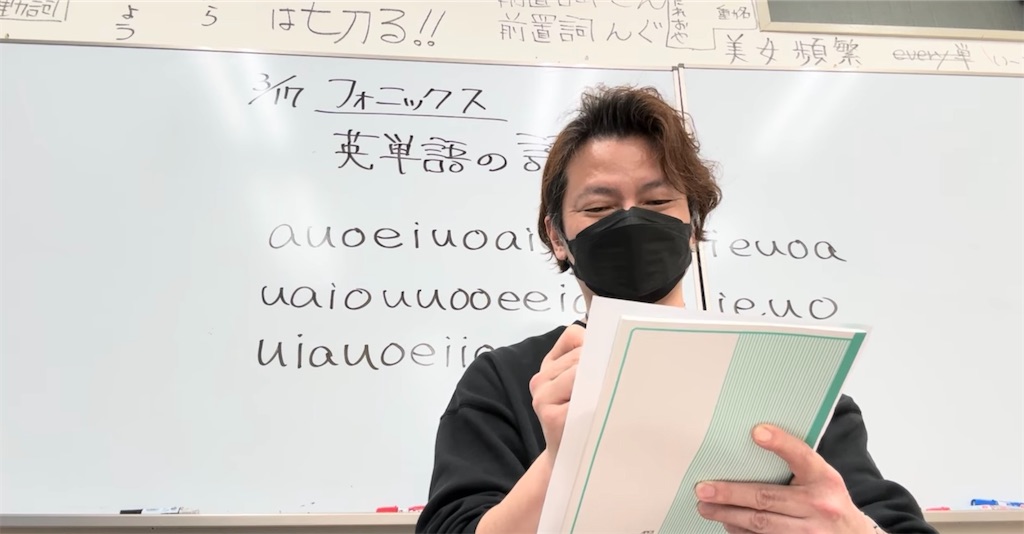 動詞 よう ら は七刀る!! 前置詞 んぐ 動名
美女 頻繁 every 単
3/17 フォニックス
英単語の
auoeiuoai ieuoa
uaiouuooeei ieuo
uiauoeii